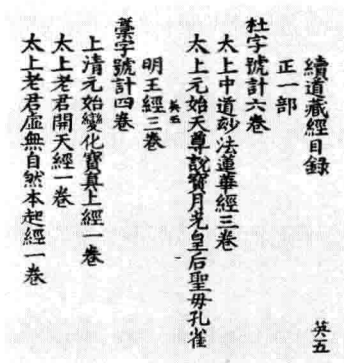 續道藏經目錄
正一部
英五
杜字號計六卷
太上中道玅法蓮華經三卷
太上元始天尊說寶月光皇后聖母孔雀
明王經三卷
英五
藁字號計四卷
上清元始變化寶真上經一卷
太上老君開天經一卷
太上老君虛無自然本起經一卷